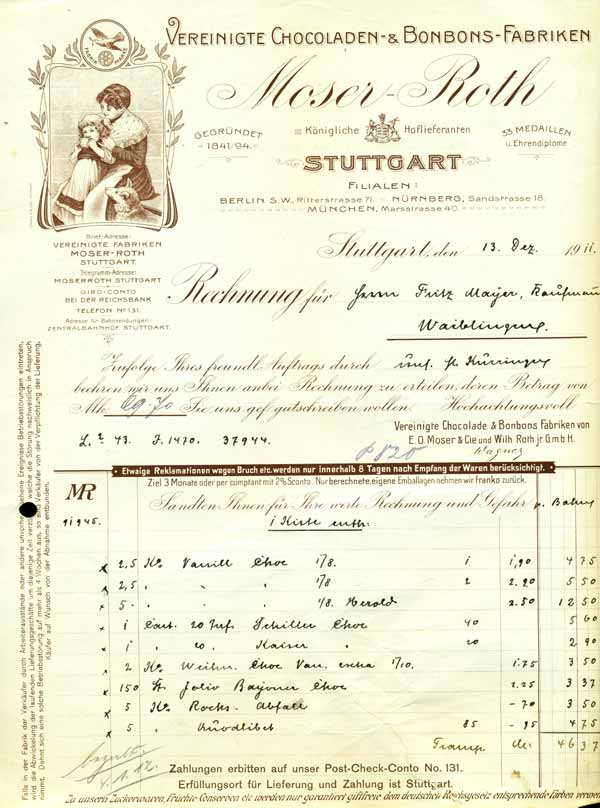 VEREINIGTE CHOCOLADEN- & BONBONS-FABRIKEN
Moser-Roth
GEGRÜNDET
1841/94.
Königliche Hoflieferanten
33 MEDAILLEN
u. Ehrendiplome
STUTTGART
FILIALEN:
BERLIN S.W., Ritterstrasse 71. NÜRNBERG, Sandstrasse 18.
MÜNCHEN, Marsstrasse 40.
Brief-Adresse:
VEREINIGTE FABRIKEN
MOSER-ROTH
STUTTGART.
Telegramm-Adresse:
MOSERROTH STUTTGART
GIRO-CONTO
BEI DER REICHSBANK
TELEFON No 131.
Adresse für Bahnsendungen:
ZENTRALBAHNHOF STUTTGART.
Stuttgart, den 13. Dez. 1911.
Rechnung für Herrn Fritz Mayer, Kaufmann
Waiblingen.
Zufolge Ihres freundl. Auftrags durch
beehren wir uns Ihnen anbei Rechnung zu erteilen, deren Betrag von
Mk. 69.70 Sie uns gef. gutschreiben wollen Hochachtungsvoll
Vereinigte Chocolade & Bonbons Fabriken von
E. O. Moser & Cie und Wilh. Roth jr. G.m.b.H.
Wagner
43. F. 1470. 37944.
P 820
Etwaige Reklamationen wegen Bruch etc. werden nur innerhalb 8 Tagen nach Empfang der Waren berücksichtigt.
Ziel 3 Monate oder per comptant mit 2% Sconto. Nur berechnete, eigene Emballagen nehmen wir franko zurück.
Sandten Ihnen für Ihre werte Rechnung und Gefahr p. Bahn
MR
91945.
1 Kiste enth:
2,5 Ko Vanill Choc 1/8. 1 1,90 4 75
2,5 " " 1/8 2 2.20 5 50
5 " " 1/8. Herold 2.50 12 50
1 Cart. 20 Schiller Choc 40 5 60
1 " 20. Kaiser " 20 2 90
2 Ko Weihn. Choc Van. 1/10. 1.75 3 50
150 St. Bajoner Choc 2.25 3 37
5 Ko Rocks-Abfall - 70 3 50
5 " Quodlibet 85 - 95 4 75
Transp. 46 37
Zahlungen erbitten auf unser Post-Check-Conto No. 131.
Erfüllungsort für Lieferung und Zahlung ist Stuttgart.
Zu unsern Zuckerwaren, Früchte-Conserven etc werden nur garantiert giftfreie dem deutschen Reichsgesetz entsprechende Farben verwen
Falls in der Fabrik der Verkäufer durch Arbeiterausstände oder andere unvorhergesehene Ereignisse Betriebsstörungen eintreten,
wird die Abwickelung der laufenden Lieferungsgeschäfte um diejenige Zeit verzögert, welche die Störung nachweislich in Anspruch
nimmt. Dehnt sich eine solche Betriebsstörung auf mehr als 4 Wochen aus, so sind Verkäufer von der Verpflichtung der Lieferung,
Käufer auf Wunsch von der Abnahme entbunden.